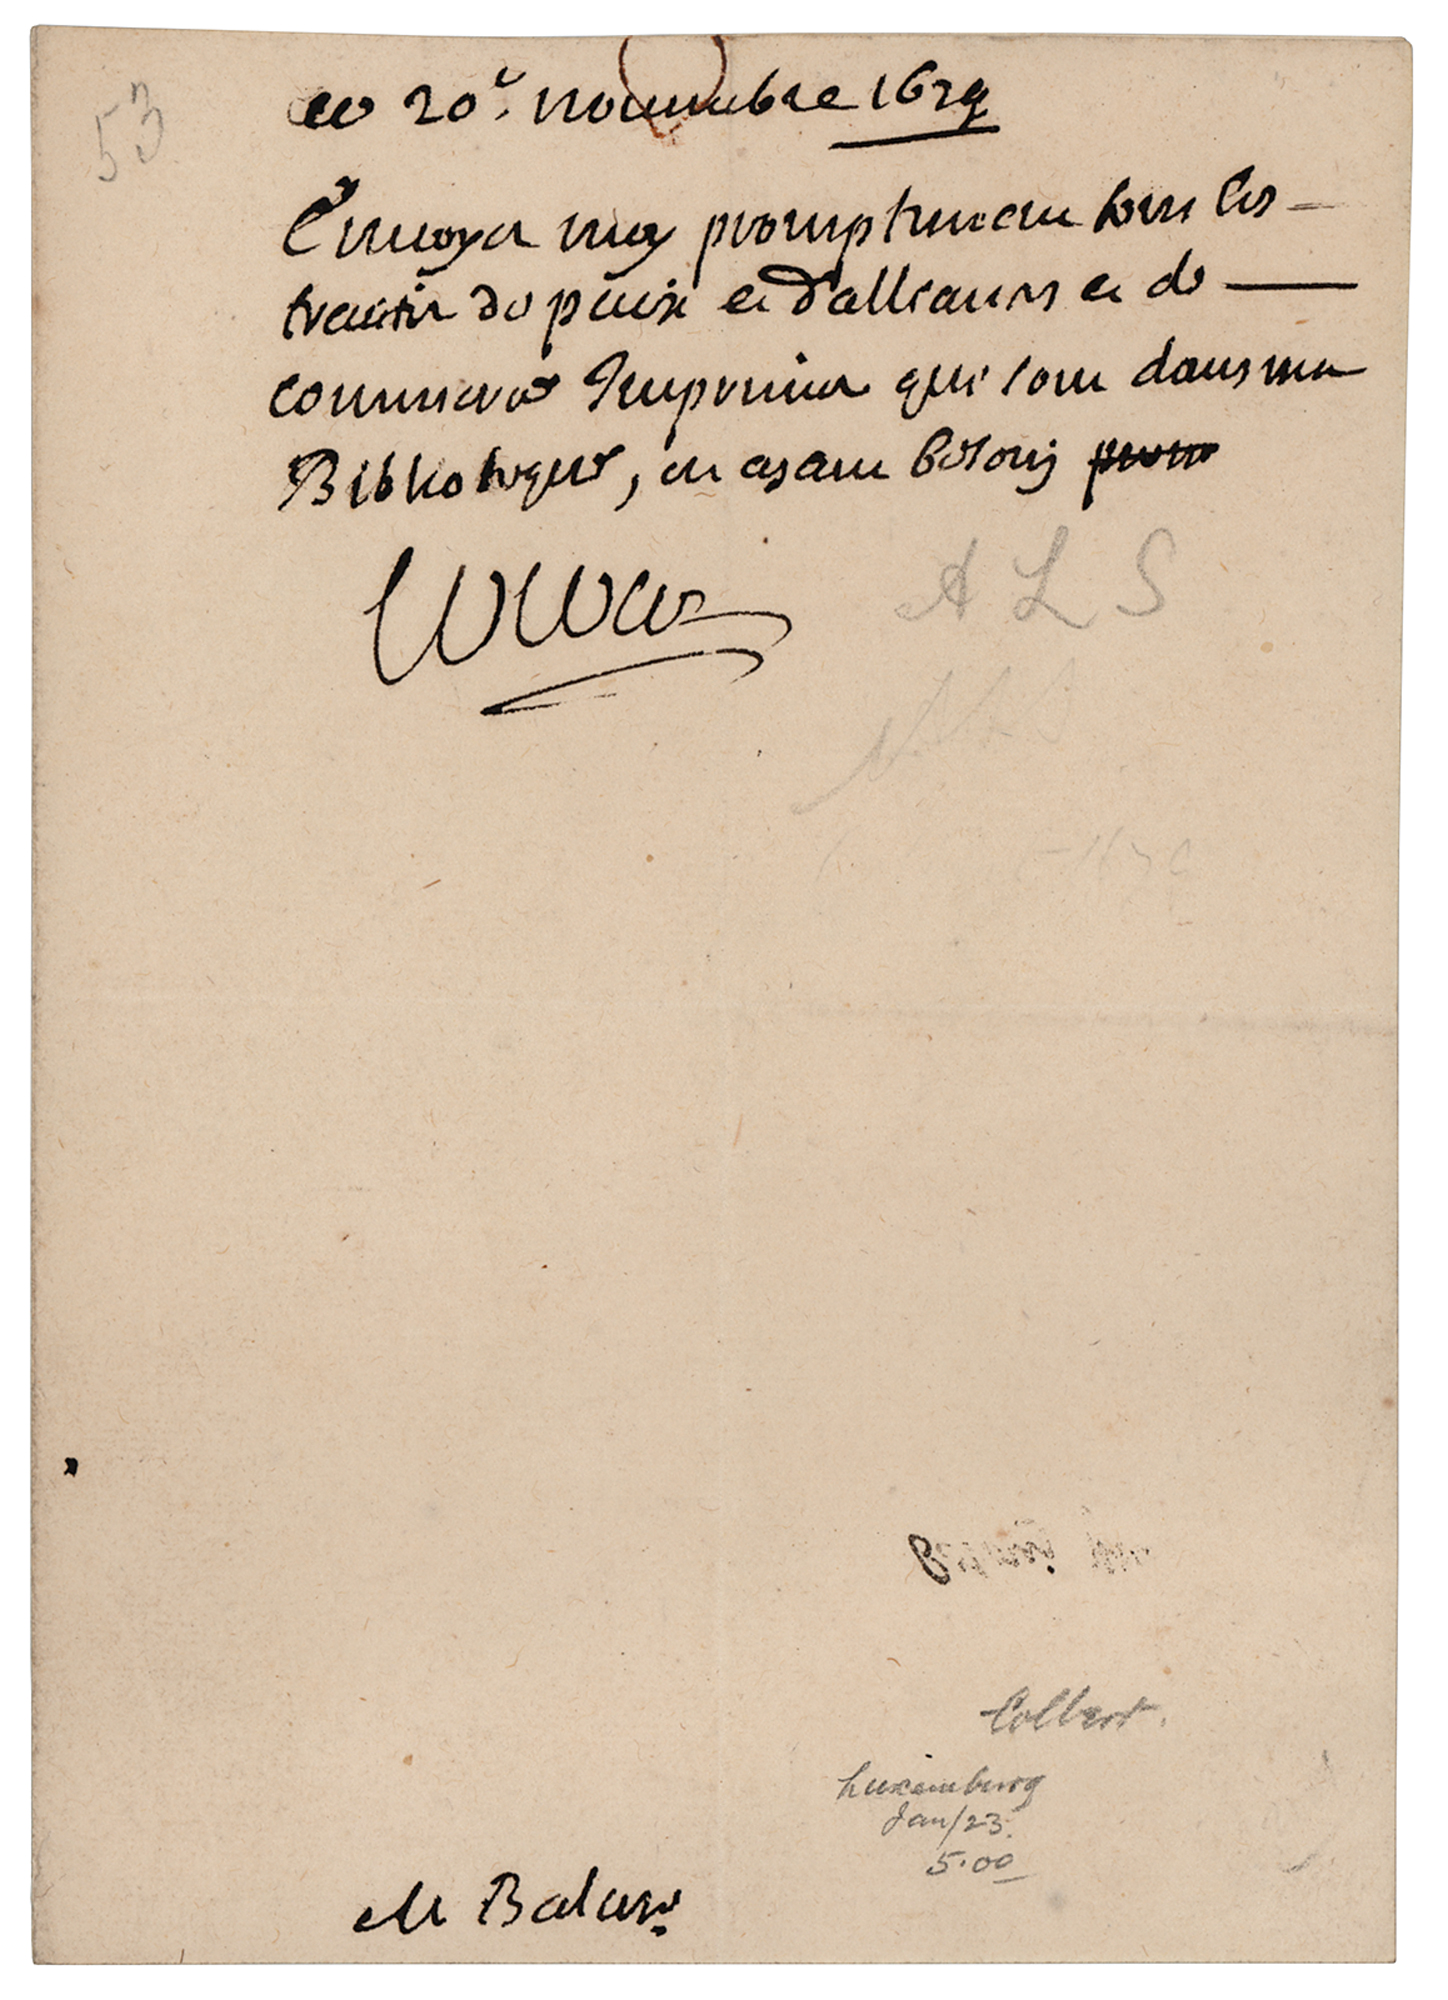 53
ce 20e. novembre 1679
Envoyez moy promptement tous les
traittez de paix et d'alliances et de
commerce Imprimez qui sont dans ma
Bibliotheque, en ayant besoin
Colbert
A L S
Colbert.
Luxemburg
Jan/23.
5.00
Mr Baluze